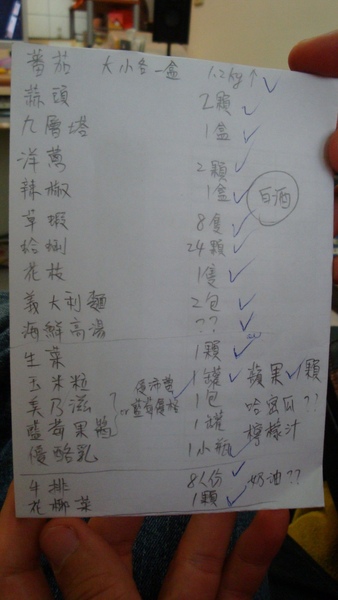 蕃茄 大小各一盒 1.2kg↑ ✓
蒜頭 2顆 ✓
九層塔 1盒 ✓
洋蔥 2顆 ✓
辣椒 1盒 ✓ 白酒
草蝦 8隻 ✓
蛤蜊 24顆 ✓
花枝 1隻 ✓
義大利麵 2包 ✓
海鮮高湯 ?? ✓
生菜 1顆 ✓
玉米粒 1罐 ✓ 蘋果 ✓ 1顆
美乃滋 1包 哈密瓜??
藍莓果醬 or藍莓優格 1罐 檸檬汁
優酪乳 1小瓶 ✓
牛排 8人份 ✓ 奶油??
花椰菜 1顆 ✓